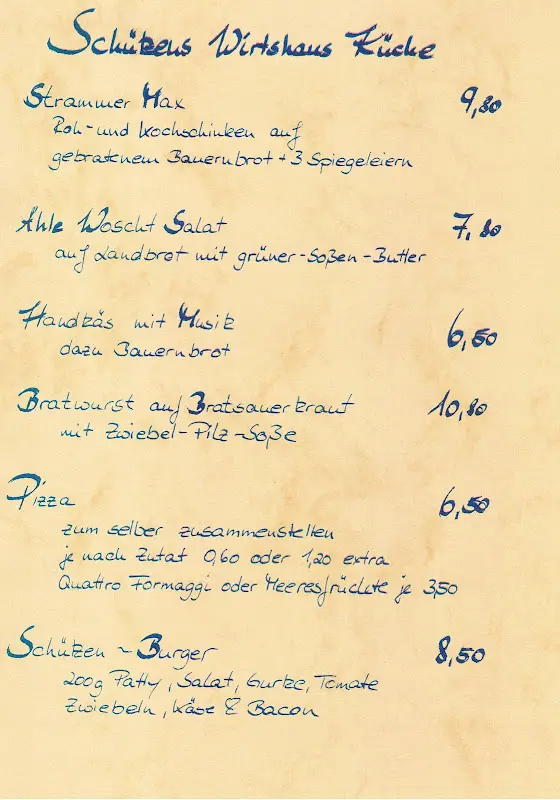 Schützens Wirtshaus Küche
Strammer Max 9,80
Roh- und Kochschinken auf
gebratenem Bauernbrot + 3 Spiegeleiern
Ahle Woscht Salat 7,80
auf Landbrot mit grüner-Soßen-Butter
Handkäs mit Musik 6,50
dazu Bauernbrot
Bratwurst auf Bratsauerkraut 10,80
mit Zwiebel-Pilz-Soße
Pizza 6,50
zum selber zusammenstellen
je nach Zutat 0,60 oder 1,20 extra
Quattro Formaggi oder Meeresfrüchte je 3,50
Schützen ~ Burger 8,50
200g Patty, Salat, Gurke, Tomate
Zwiebeln, Käse & Bacon